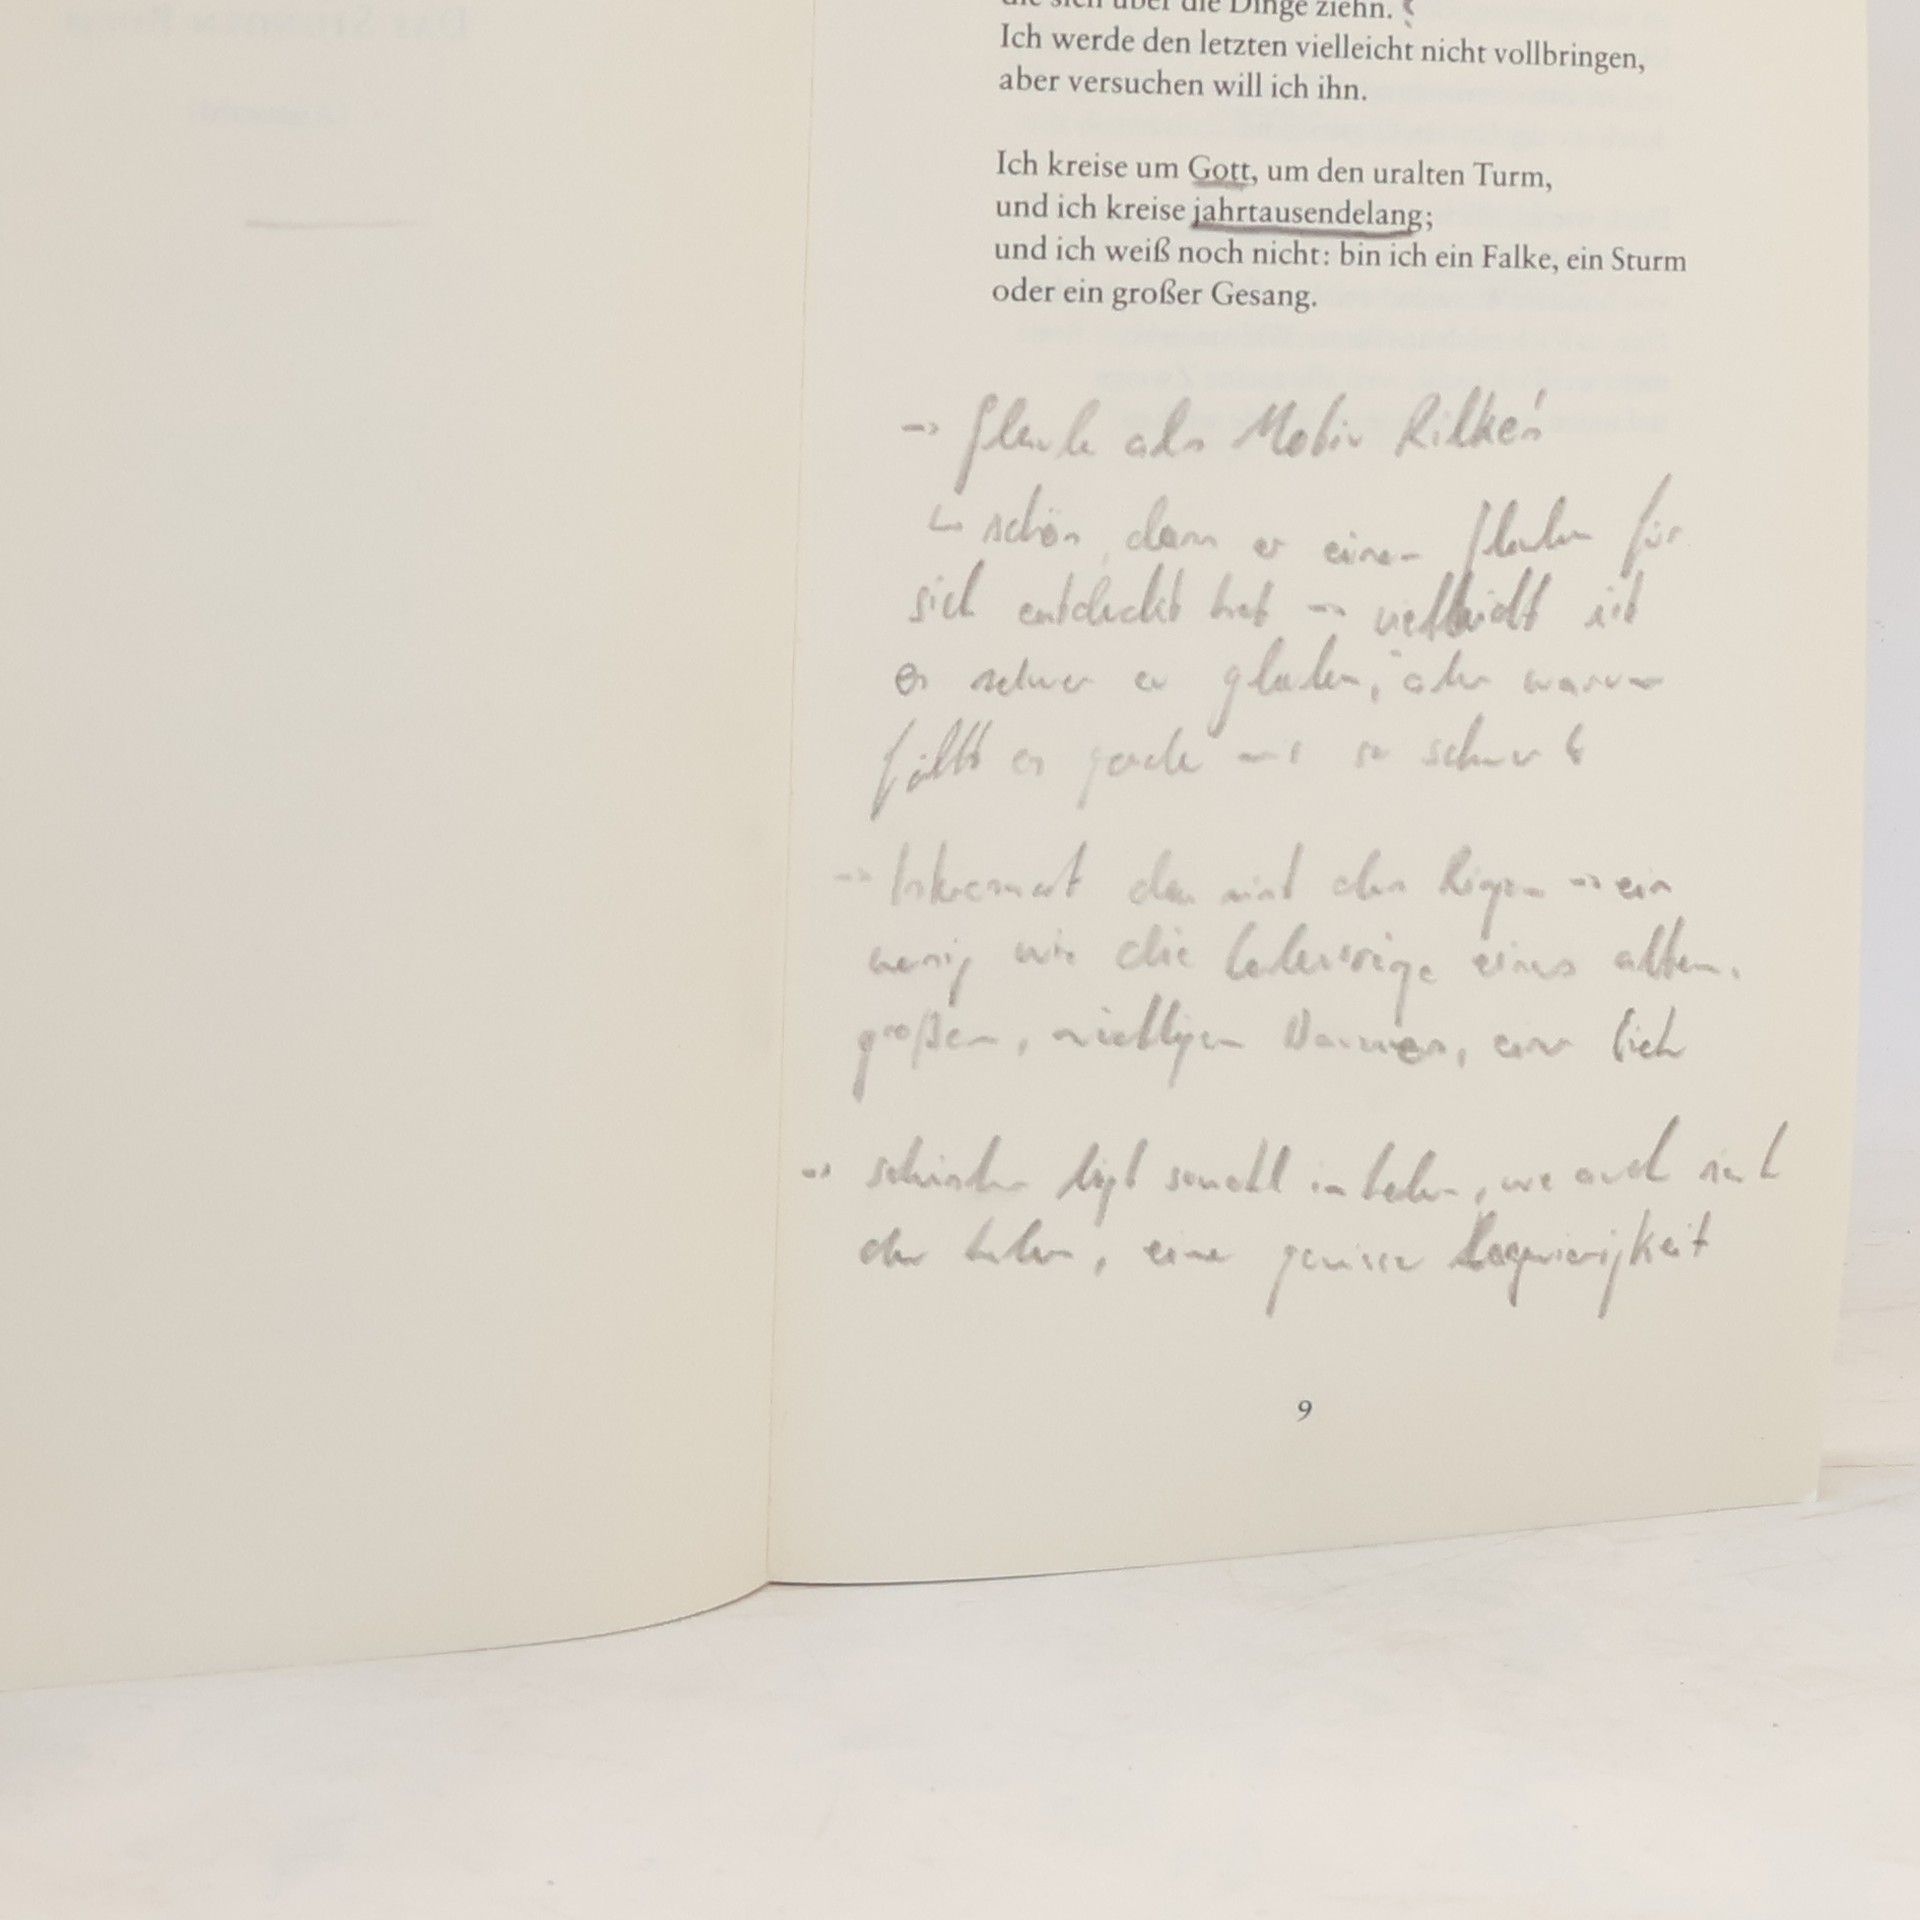 die sich über die Dinge ziehn.
Ich werde den letzten vielleicht nicht vollbringen,
aber versuchen will ich ihn.
Ich kreise um Gott, um den uralten Turm,
und ich kreise jahrtausendelang;
und ich weiß noch nicht: bin ich ein Falke, ein Sturm
oder ein großer Gesang.
→ Glaube als Motiv Rilkes
↳ schön, dass er einen Glauben für
sich entdeckt hat → vielleicht ist
es schwer zu glauben, aber warum
fällt es gerade uns so schwer
→ Interessant das mit den Ringen → ein
wenig wie die eines alten,
großen, wichtigen Baumes, eine
→ liegt sowohl im Leben, wie auch mit
dem, eine gewisse
9